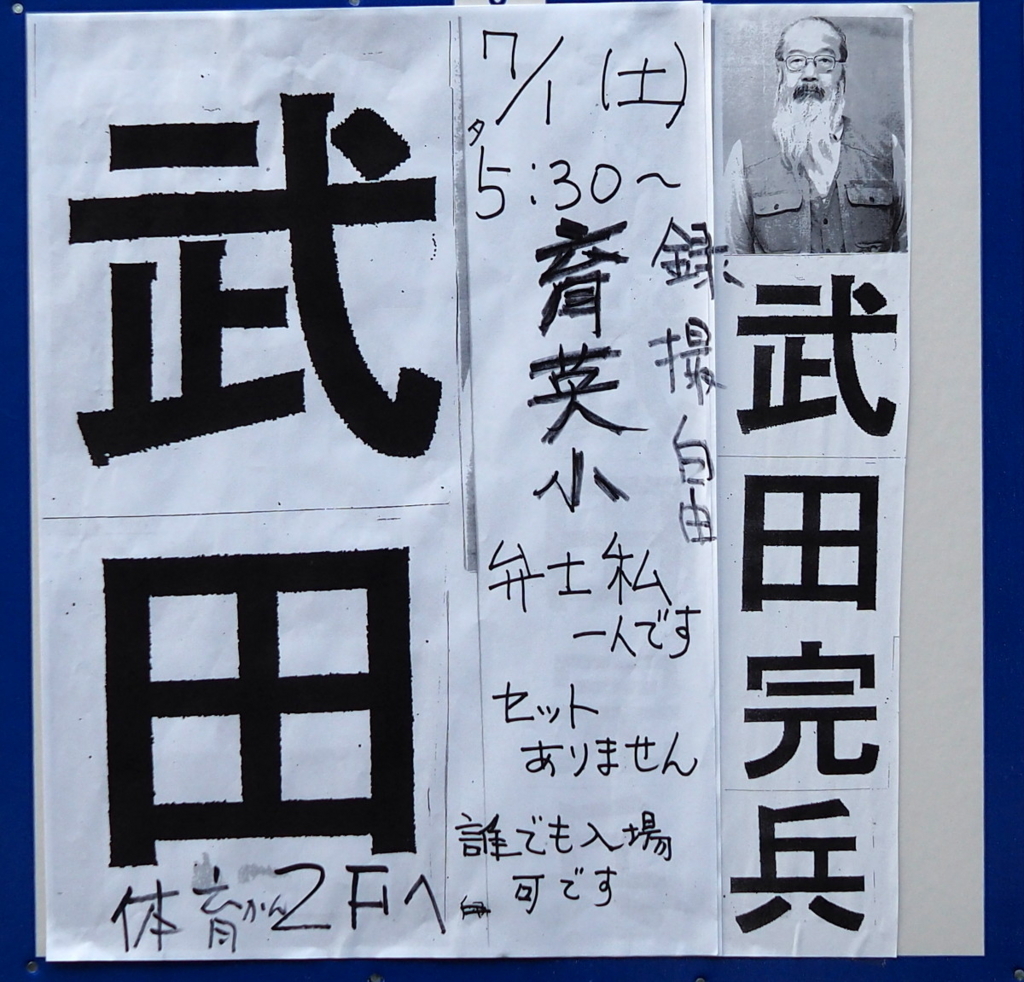 武田
体育かん2Fへ
7/1(土)
夕5:30～
育英小
録、撮自由
弁士私
一人です
セット
ありません
誰でも入場
可です
武田完兵